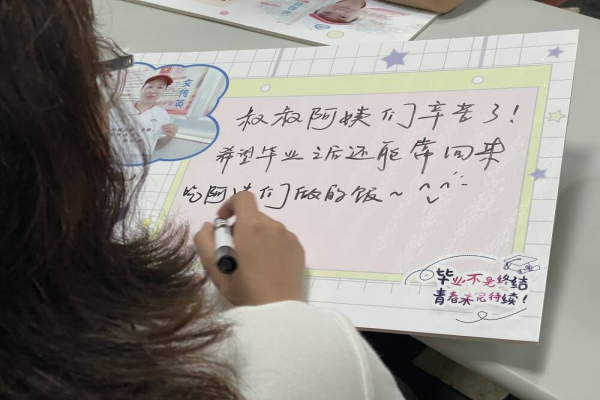 叔叔阿姨们辛苦了!
希望毕业之后还能常回来
吃阿姨们做的饭~
毕业不是终结
青春未完待续!